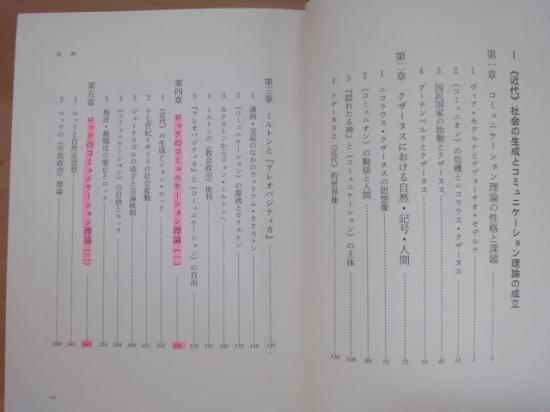 I 《近代》社会の生成とコミュニケーション理論の成立
第一章 コミュニケーション理論の性格と課題
1 ヴィア・モデルナとデヴォーティオ・モデルナ 3
2 《コミュニオン》の危機とニコラウス・クザーヌス 16
3 国民国家の胎動とクザーヌス 40
4 グーテンベルクとクザーヌス 53
第二章 クザーヌスにおける自然・記号・人間
1 ニコラウス・クザーヌスの思想像
2 《コミュニオン》の動揺と人間 89
3 『隠れたる神』と《コミュニケーション》の主体 108
4 クザーヌスと《近代》的世界像
目次
第三章 ミルトンと『アレオパジティカ』
1 通商・交易のなかのウィリアム・カクストン
2 《コミュニケーション》の源流とカクストン
3 カクストンからジョン・ミルトンへ
4 ミルトンの《教会政治》批判
5 『アレオパジティカ』と《コミュニケーション》の自由
第四章 ロックのコミュニケーション理論(一) 221
1 《近代》の生成とジョン・ロック
2 十七世紀イギリスの社会変動
3 ジャーナリズムの成立と言論統制
4 《コミュニケーション》の自由とロック
5 特許・検閲法の廃止とロック
第五章 ロックのコミュニケーション理論(二)
1 ロックと自然法思想
2 ロックの《市民政治》理論